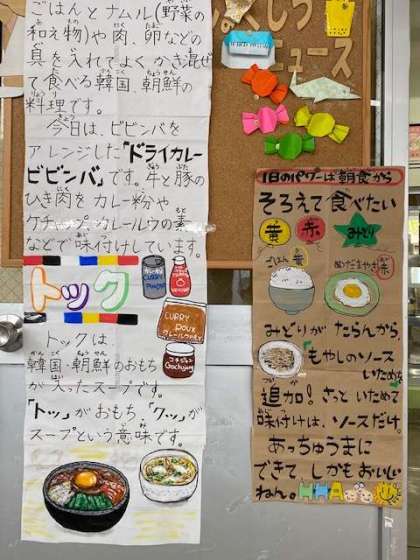 ごはんとナムル(野菜の
和え物)や肉、卵などの
具を入れてよくかき混ぜ
て食べる韓国、朝鮮の
料理です。
今日は、ビビンバを
アレンジした「ドライカレー
ビビンバ」です。牛と豚の
ひき肉をカレー粉や
ケチャップ、カレールウの素
などで味付けしています。
トック
CURRY
ROUX
カレールウのもと
コチュジャン
Gochujang
トックは
韓国・朝鮮のおもち
が入ったスープです。
「トッ」がおもち、「クッ」が
スープという意味です。
ニュース
1日のパワーは朝食から
そろえて食べたい
黄 赤 みどり
ごはん 黄
めだまやき 赤
みどりがたらんから、
「もやしのソース
いため」を
追加!さっといためて
味付けは、ソースだけ。
あっちゅうまに
できて、しかもおいしい
ねん。